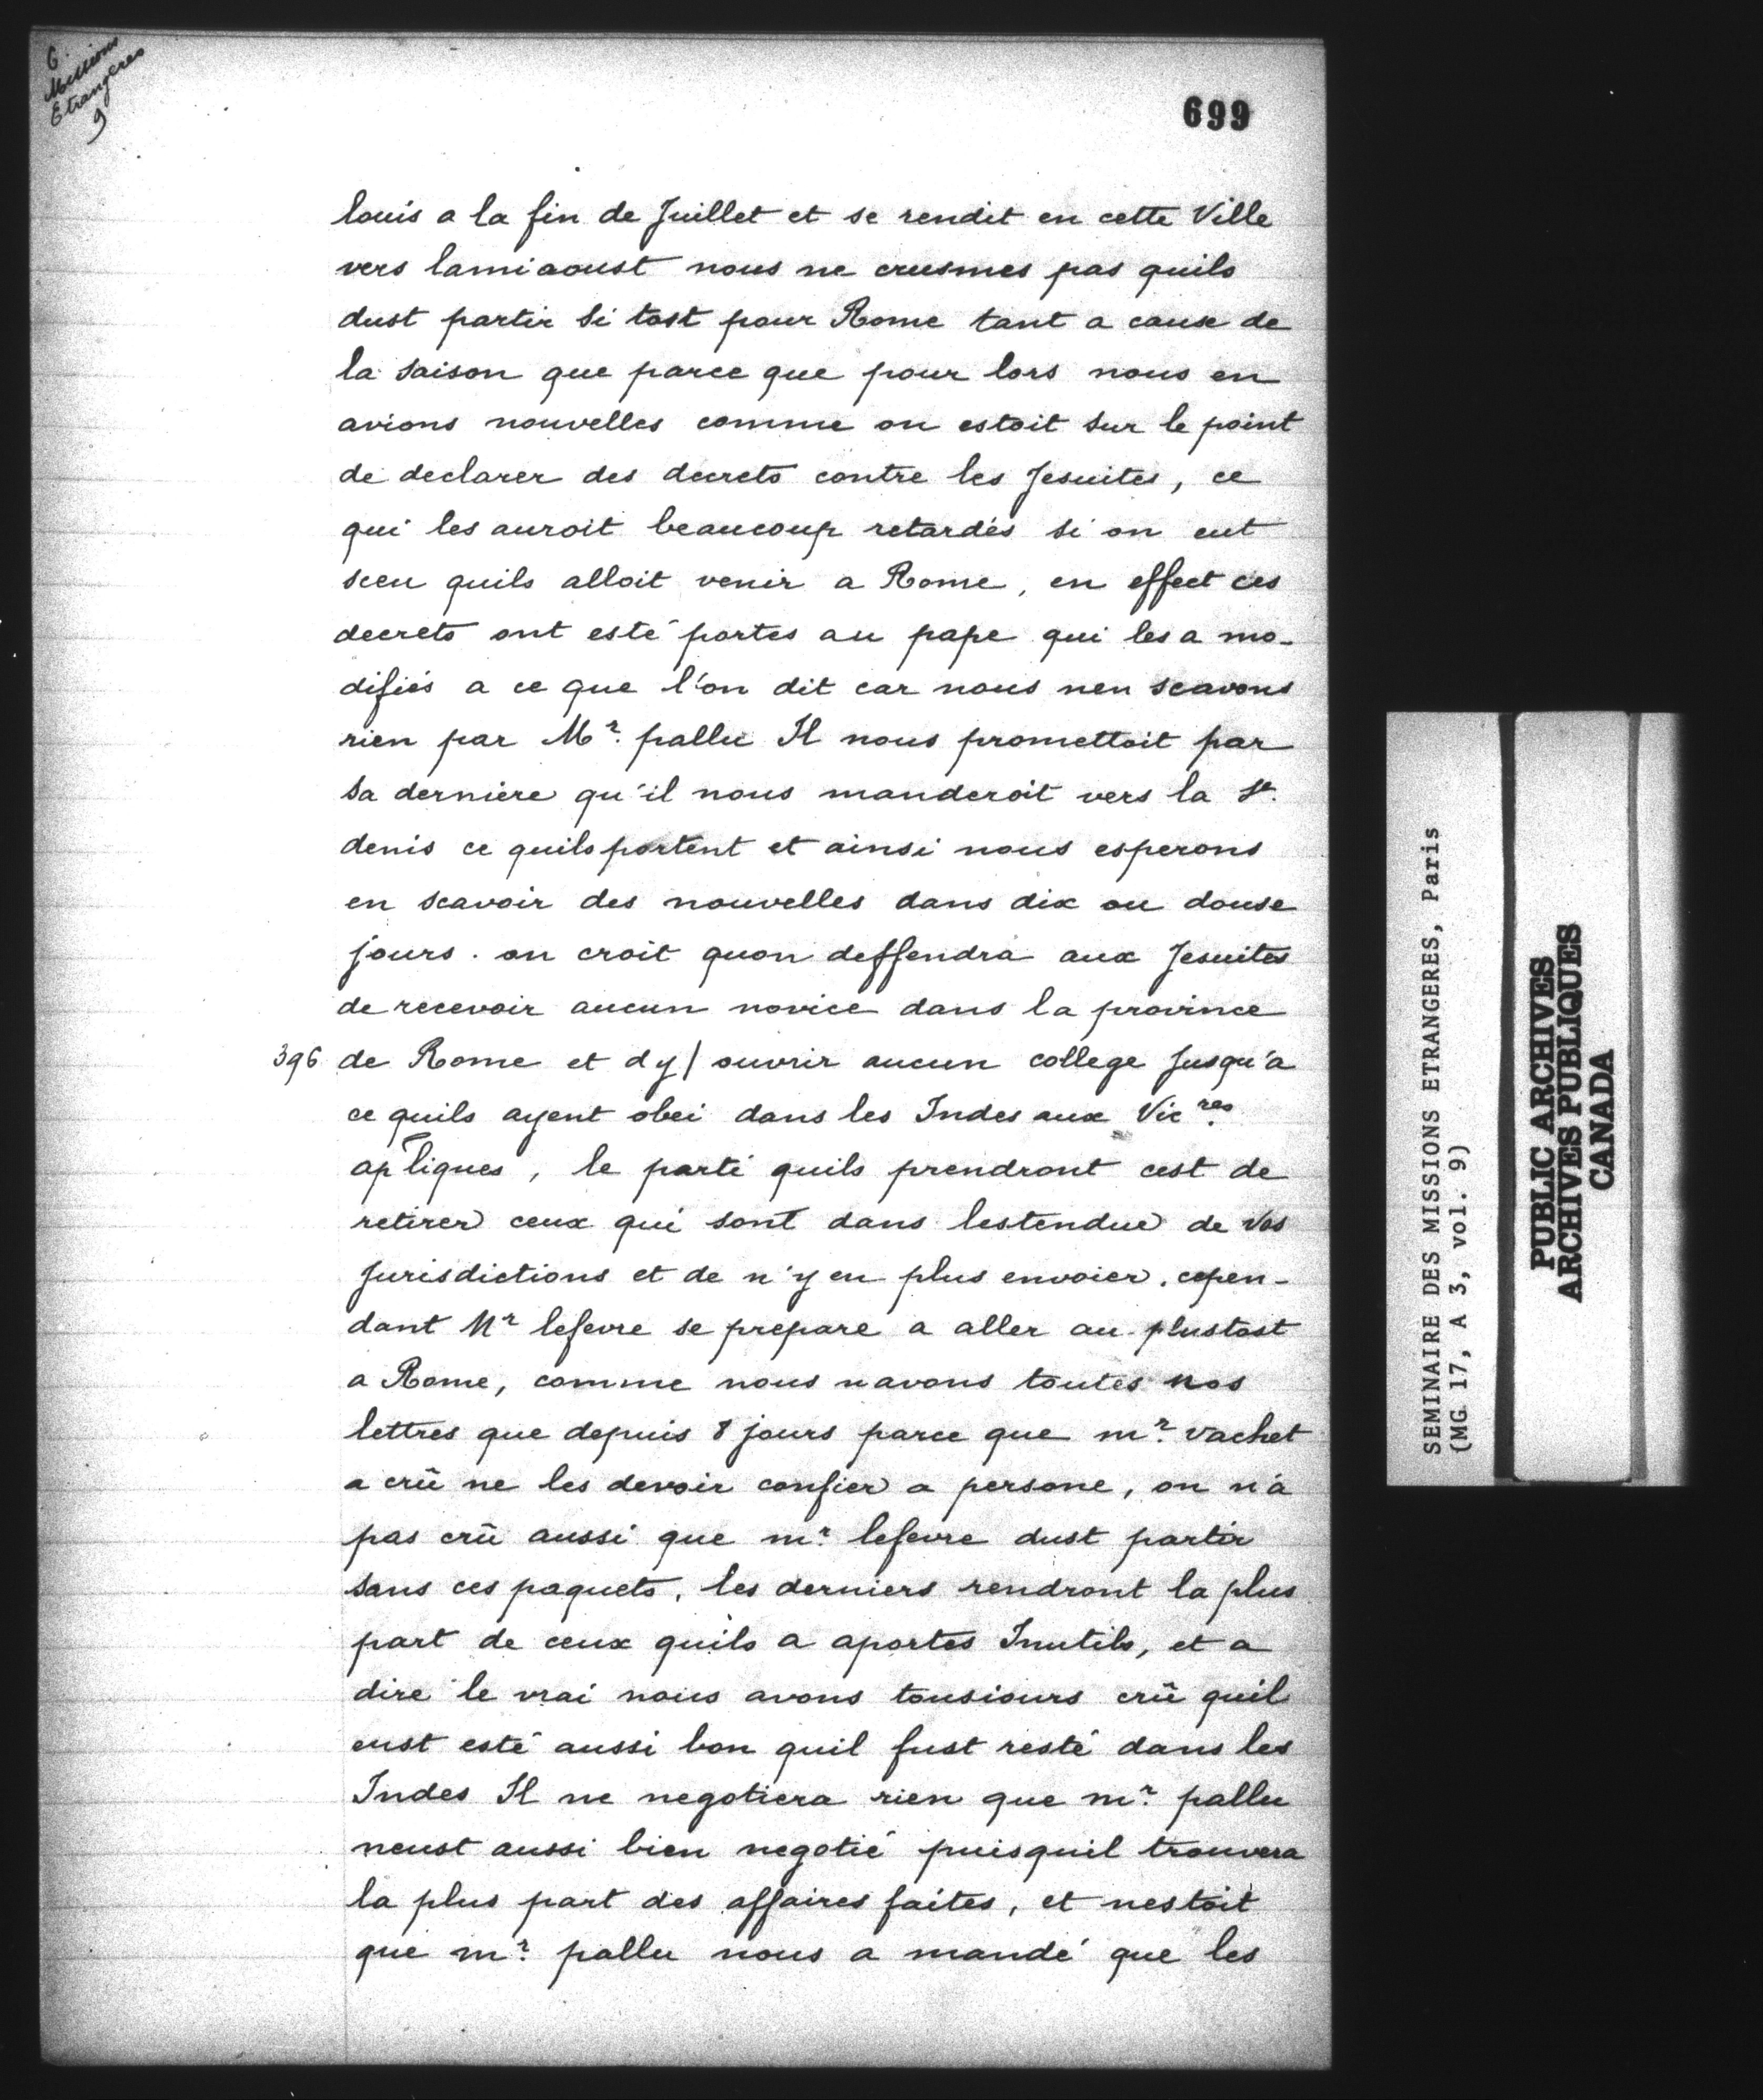 6.
Missions
Etrangeres
9
699
louis a la fin de Juillet et se rendit en cette Ville
vers lamiaoust nous ne crusmes pas quils
dust partir si tost pour Rome tant a cause de
la saison que parce que pour lors nous en
avions nouvelles comme on estoit sur le point
de declarer des decrets contre les Jesuites, ce
qui les auroit beaucoup retardés si on eut
sceu quils alloit venir a Rome, en effect ces
decrets ont esté portes au pape qui les a mo-
difiés a ce que l'on dit car nous nen scavons
rien par Mr. pallu Il nous promettoit par
sa derniere qu'il nous manderoit vers la St.
denis ce quils portent et ainsi nous esperons
en scavoir des nouvelles dans dix ou douse
jours. on croit quon deffendra aux Jesuites
de recevoir aucun novice dans la province
396 de Rome et dy/ ouvrir aucun college Jusqu'a
ce quils ayent obei dans les Indes aux Vicres.
ap̄liques, le parti quils prendront cest de
retirer ceux qui sont dans lestendue de vos
Jurisdictions et de n'y en plus envoier. cepen-
dant Mr lefevre se prepare a aller au plustost
a Rome, comme nous navons toutes nos
lettres que depuis 8 jours parce que mr. vachet
a crû ne les devoir confier a persone, on n'a
pas crû aussi que mr. lefevre dust partir
sans ces paquets. les derniers rendront la plus
part de ceux quils a aportes Inutils, et a
dire le vrai nous avons tousiours crû quil
eust esté aussi bon quil fust resté dans les
Indes Il ne negotiera rien que mr. pallu
neust aussi bien negotié puisquil trouvera
la plus part des affaires faites, et nestoit
que mr. pallu nous a mandé que les
SEMINAIRE DES MISSIONS ETRANGERES, Paris
(MG 17, A 3, vol. 9)
PUBLIC ARCHIVES
ARCHIVES PUBLIQUES
CANADA